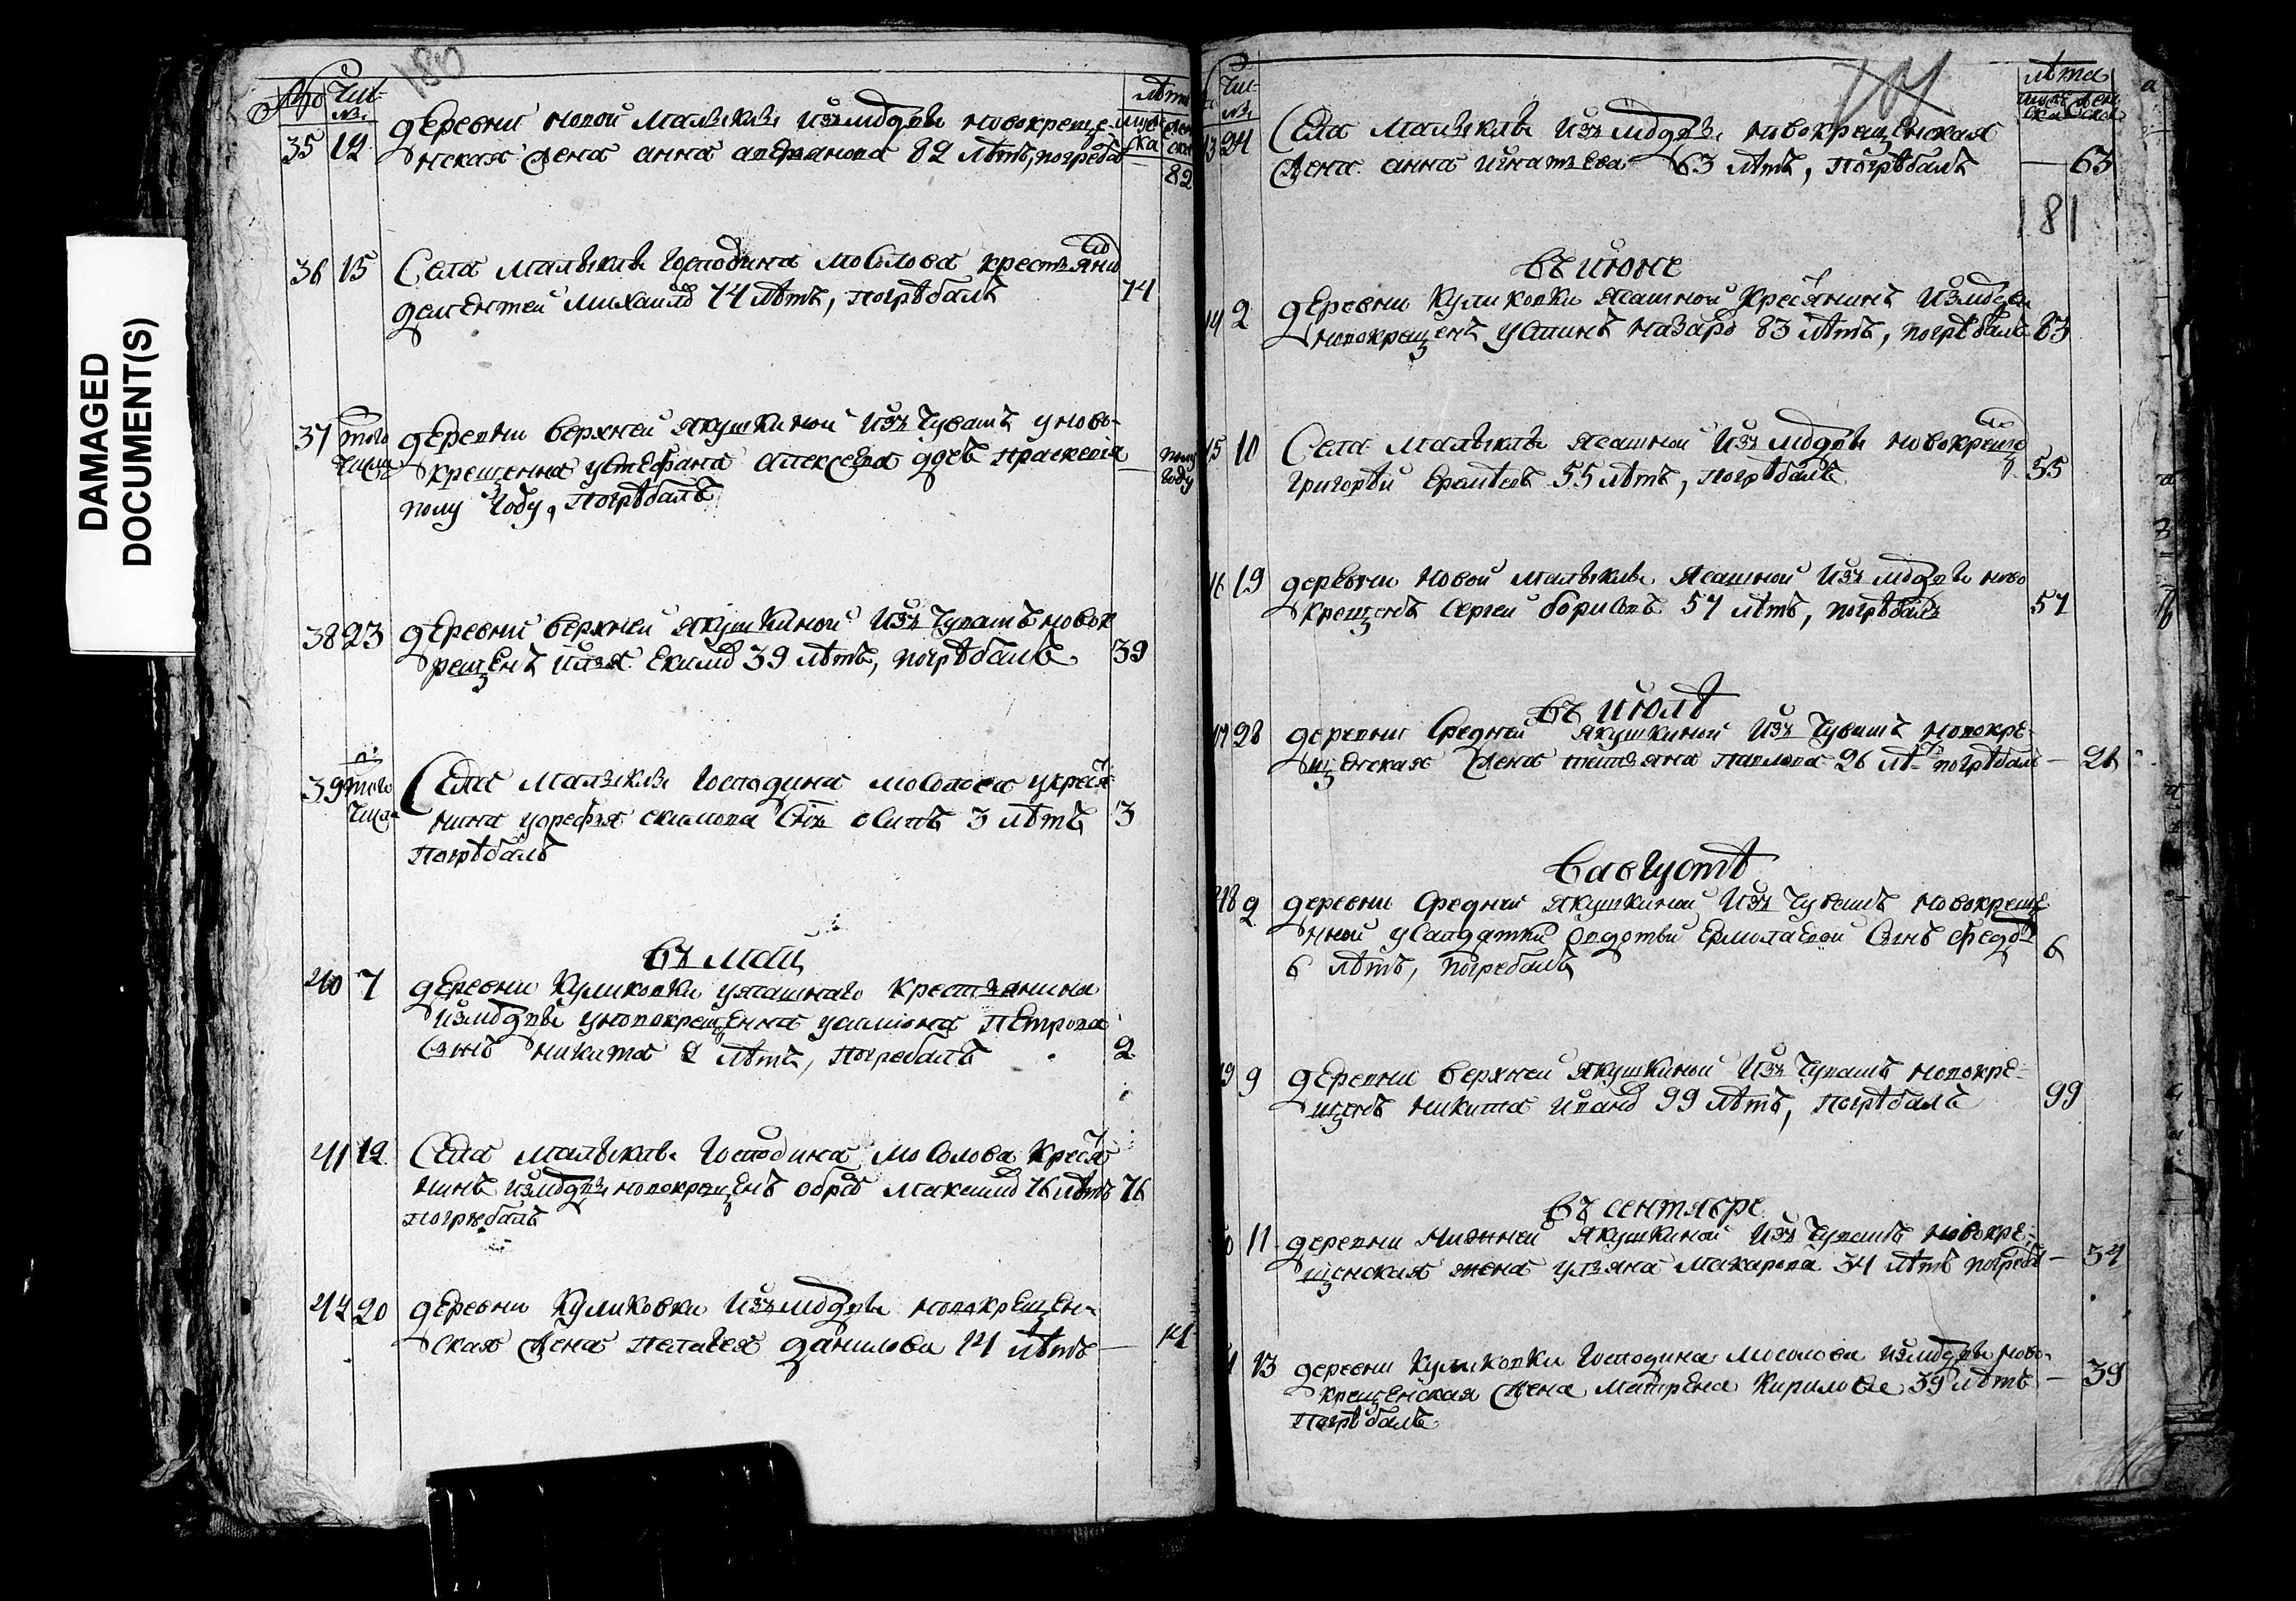 DAMAGED
DOCUMENT(S)
180
№ Чис-
ла
лѣта
мужеска женска
35 12 деревни новой Малыклы изъ мордвы новокреще-
нская жена анна аверьянова 82 лѣтъ, погребе 82
36 15 Села Малыклы господина мосолова крестьянинъ
дементей михаилъ 74 лѣтъ, погрѣбалъ 74
37 того деревни верхней якушкиной изъ чувашъ у ново-
числа крещенна у стефана алексева дочь праскевiя полу
полу году, погрѣбалъ году
38 23 деревни верхней якушкиной изъ чувашъ новок
рещенъ илья екимъ 39 лѣтъ, погрѣбалъ 39
39 того Села Малыклы господина мосолова у крестья
числа нина у орефья екимова снъ осипъ 3 лѣтъ 3
погрѣбалъ
въ маiи
40 7 деревни Куликовки у ясашнаго крестьянина
измордвы у новокрещенна у симiона петрова
сынъ никита 2 лѣтъ, погребалъ 2
41 12 Села малыклы господина мосолова крестья
нинъ измордвы новокрещенъ максимъ 76 лѣтъ 76
погрѣбалъ
42 20 деревни Куликовки изъ мордвы новокрещен-
ская жена пелагея данилова 14 лѣтъ — 14
Чис-
ла
лѣта
мужеска женска
181
24 Села малыклы изъ мордвы новокрещенская
жена анна игнатьева 63 лѣтъ, погрѣбалъ — 63
въ июне
2 деревни Куликовки ясашной крестьянинъ измордвы
новокрещенъ устинъ назаръ 83 лѣтъ, погрѣбалъ 83
10 Села малыклы ясашной изъ мордвы новокрещенъ
григорѣй еремѣевъ 55 лѣтъ, погрѣбалъ 55
19 деревни новой малыклы ясашной изъ мордвы ново
крещенъ сергей борисовъ 57 лѣтъ, погрѣбалъ 57
въ июлѣ
28 деревни Средней якушкиной изъ чувашъ новокре-
щенская жена татьяна павлова 26 лѣтъ погрѣбалъ — 26
в августѣ
2 деревни Средней якушкиной изъ чувашъ новокреще
нной у салдатки федотьи ермолаевой сынъ федоръ
6 лѣтъ, погребалъ 6
9 деревни верхней якушкиной изъ чувашъ новокре-
щенъ никита иванъ 99 лѣтъ, погрѣбалъ 99
въ сентябре
11 деревни нижней якушкиной изъ чувашъ новокре-
щенская жена ульяна макарова 34 лѣтъ погребъ — 34
13 деревни Куликовки господина мосолова измордвы ново-
крещенская жена матрена кирилова 39 лѣтъ — 39
погрѣбалъ